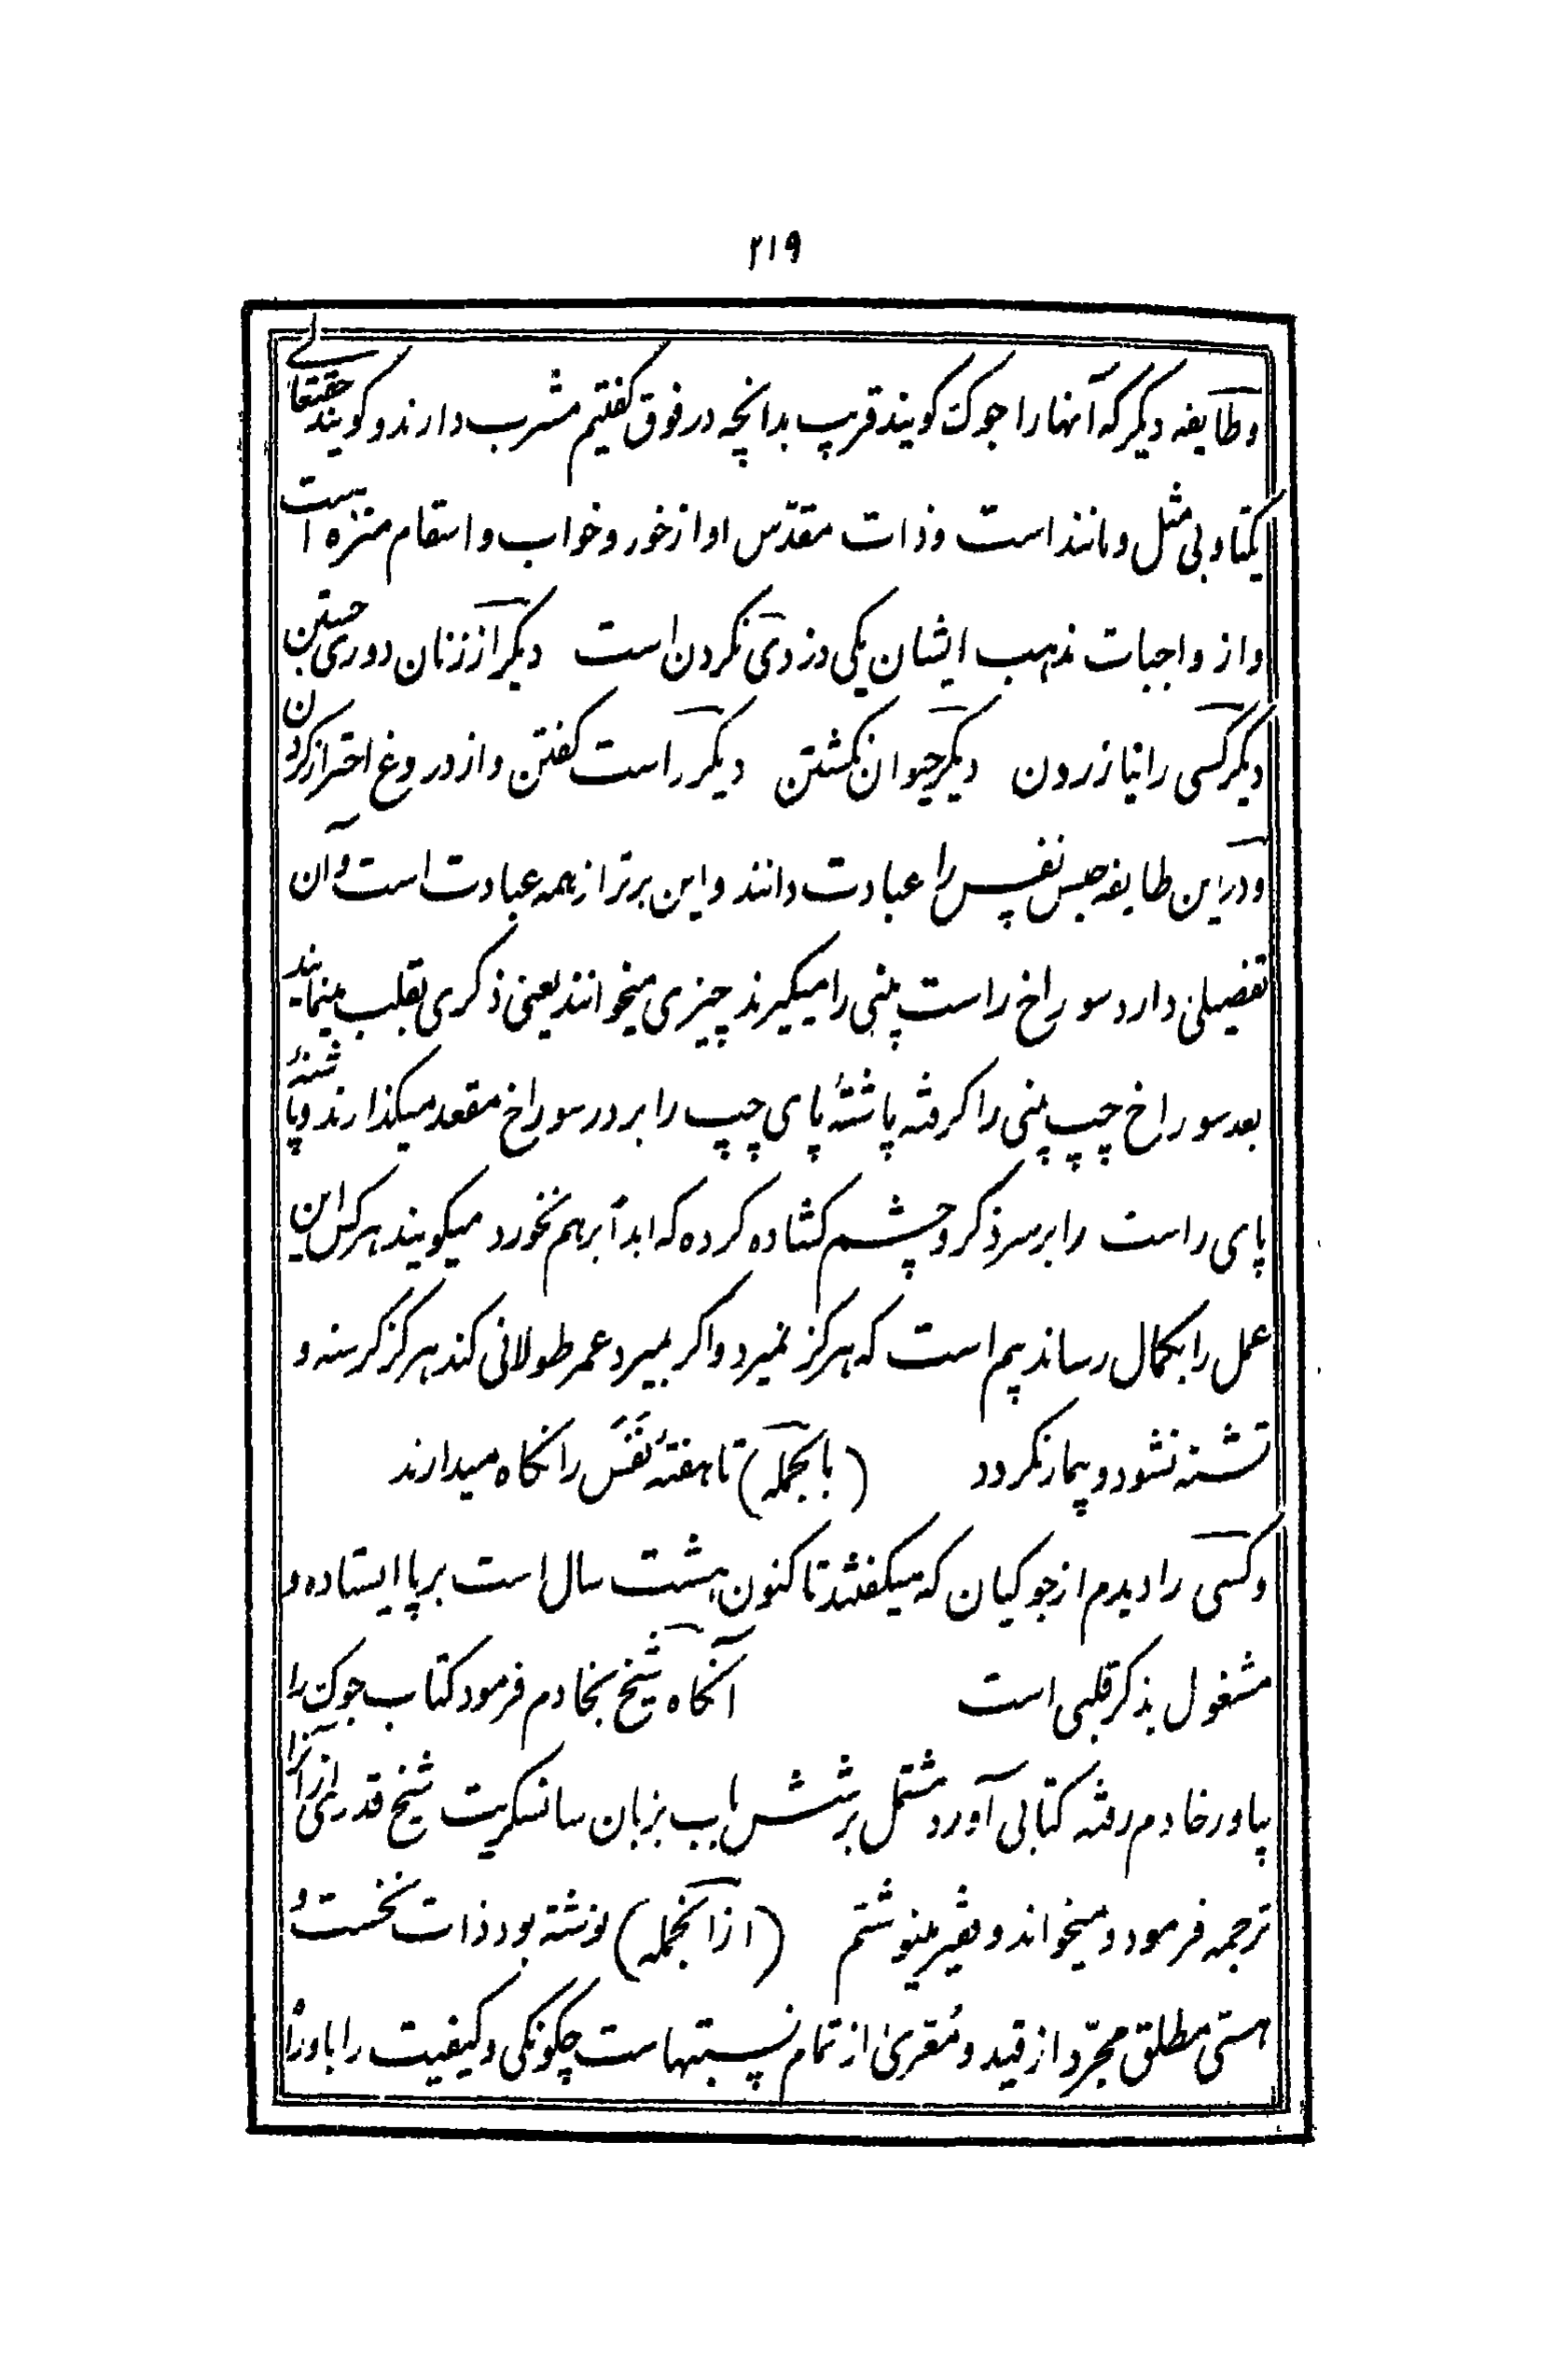 ۲۱۹
وطایفه دیکر که آنها را جوک کویند قریب بدانچه در فوق کفتیم مشرب دارند و کویند حقتعالی
یکتا و بی مثل و مانند است و ذات مقدّس او از خور و خواب و اسقام منزه است
و از واجبات مذهب ایشان یکی دزدی نکردن است دیکر از زنان دوری جستن
دیکر کسی را نیازردن دیکر حیوان نکشتن دیکر راست کفتن و از دروغ احتراز کردن
و در این طایفه حبس نفس را عبادت دانند و این برتر از همه عبادت است و آن
تفضیلی دارد سوراخ راست بینی را میکیرند چیزی میخوانند یعنی ذکری بقلب مینمایند
بعد سوراخ چپ بینی را کرفته پاشنهٔ پای چپ را بر در سوراخ مقعد میکذارند و پاشنهٔ
پای راست را بر سر ذکر و چشم کشاده کرده که ابداً برهم نخورد میکویند هرکس این
عمل را بکمال رساند بیم است که هرکز نمیرد و اکر بمیرد عمر طولانی کند هرکز کرسنه و
تشنه نشود و بیمار نکردد (بالجمله) تا هفتهٔ نَفَس را نکاه میدارند
و کسی را دیدم از جوکیان که میکفتند تا کنون هشت سال است بر پا ایستاده و
مشغول بذکر قلبی است آنکاه شیخ بخادم فرمود کتاب جوک را
بیاور خادم رفته کتابی آورد مشتمل بر شش باب بزبان سانسکریت شیخ قدری از آنرا
ترجمه فرمود و میخواند و فقیر مینوشتم (از آنجمله) نوشته بود ذات نخست و
هستی مطلق مجرّد از قید و مُعَریٰ از تمام نسبتهاست چکونکی و کیفیت را با و راه